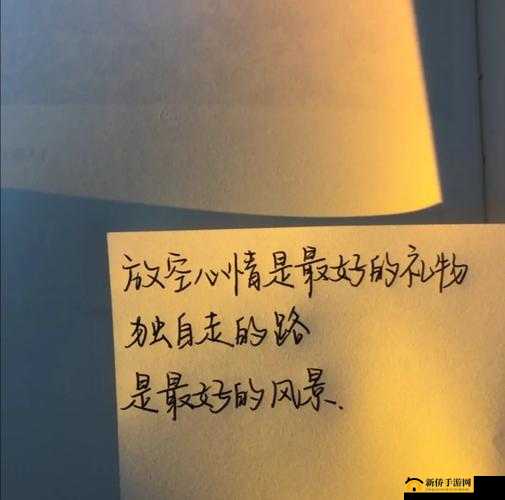 放空心情是最好的礼物
独自走的路
是最好的风景.
新侨手游网